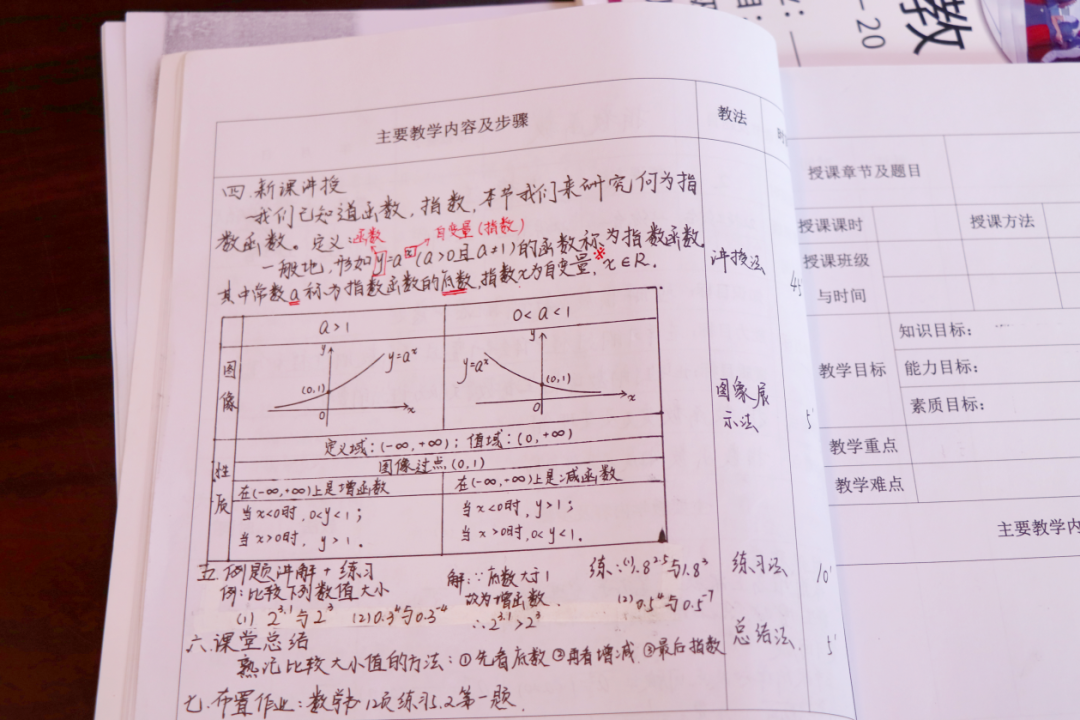 教
：一
- 20
主要教学内容及步骤
教法
四.新课讲授
我们已知道函数，指数，本节我们来研究何为指
数函数。定义：函数 自变量(指数)
一般地，形如y=aˣ(a>0且a≠1)的函数称为指数函数
其中常数a称为指数函数的底数，指数x为自变量，x∈R.
讲授法
45
a>1
0<a<1
图像
y
y=aˣ
(0,1)
0
x
y
y=aˣ
(0,1)
0
x
图象展
示法
5'
性质
定义域：(-∞,+∞)；值域：(0,+∞)
图像过点(0,1)
在(-∞,+∞)上是增函数
在(-∞,+∞)上是减函数
当x<0时,0<y<1；
当x<0时,y>1；
当x>0时, y>1.
当x>0时,0<y<1.
五.例题讲解+练习
例：比较下列数值大小
(1) 2^3.1与2^3 (2)0.3^4与0.3^-4
解：∵底数大于1
故为增函数.
∴2^3.1>2^3
练：(1)1.8^2.5与1.8^3
(2)0.5^4与0.5^-7
练习法
10'
六.课堂总结
熟记比较大小值的方法：①先看底数②再看增减③最后指数
总结法
5'
七.布置作业：数学书12页练习5.2第一题.
授课章节及题目
授课课时
授课方法
授课班级
与时间
教学目标
知识目标：
能力目标：
素质目标：
教学重点
教学难点
主要教学内